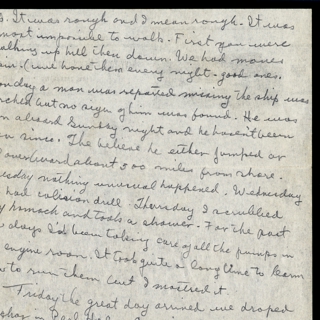 . It was rough and I mean rough. It was
most impossible to walk. First you were
walking up hill then down. We had movies
again. (We have them every night - good ones.
Monday a man was reported missing the ship was
searched but no sign of him was found. He was
on aboard Sunday night, and he hasn't been
seen since. The believe he either jumped or
overboard about 500 miles from shore.
Tuesday nothing unusual happened. Wednesday
had colision drill. Thursday I scrubbed
my hamock and took a shower. For the past
days I'd been taking care of all the pumps in
engine room. It took quite a long time to learn
how to run them but I mastered it.
Friday the great day arrived we droped